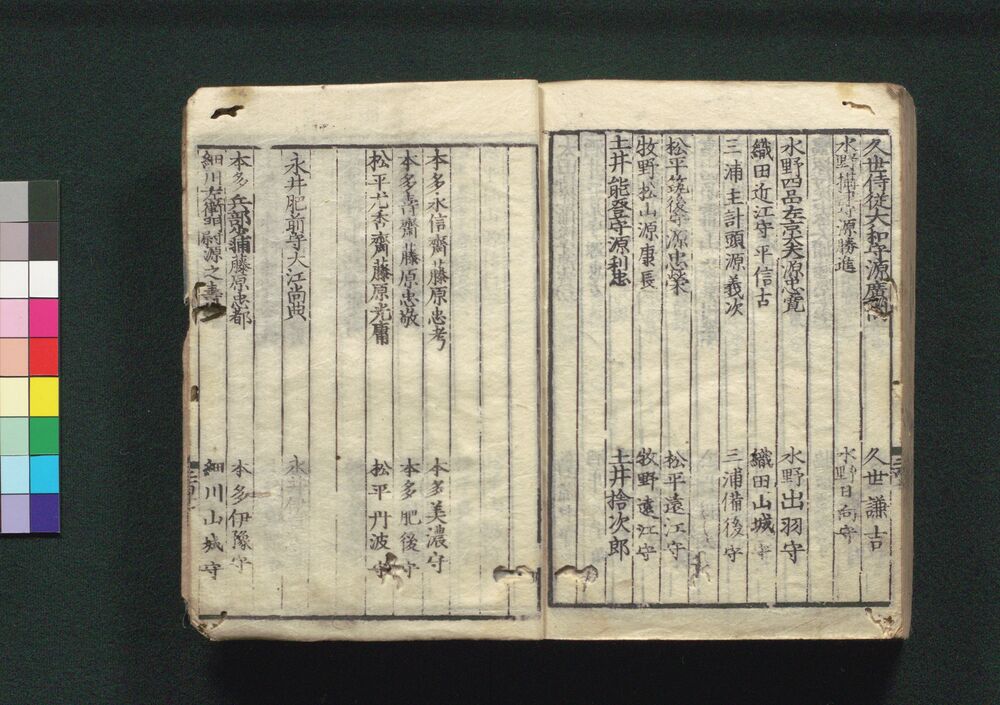 久世侍従大和守源廣 久世謙吉
水野 守源勝進 水野日向守
水野四品左京大夫源忠寛 水野出羽守
織田近江守平信古 織田山城守
三浦主計頭源義次 三浦備後守
松平筑後守源忠栄 松平遠江守
牧野松山源康長 牧野遠江守
土井能登守源利忠 土井捨次郎
本多水信齋藤原忠考 本多美濃守
本多壽齋藤原忠敬 本多肥後守
松平 齋藤原光庸 松平丹波守
永井肥前守大江尚典 永井
本多兵部 藤原忠都 本多伊豫守
細川 尉源之壽 細川山城守